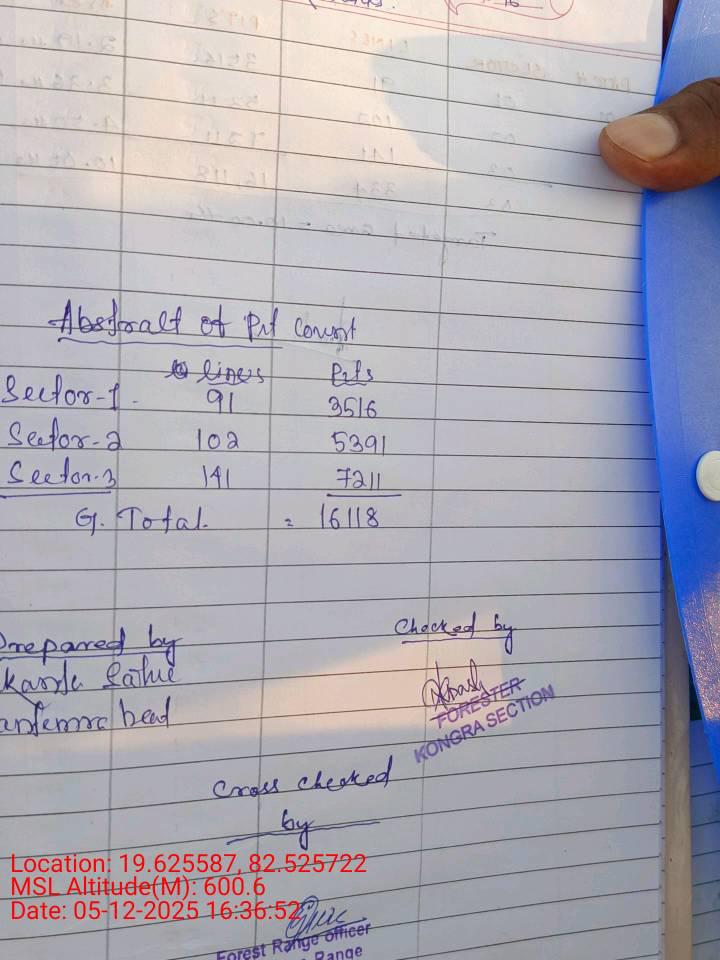 Abstralt of Pit Count
lines Pits
Sector-1. 91 3516
Sector-2 102 5391
Sector-3 141 7211
G. Total. = 16118
Prepared by
Checked by
FORESTER
KONGRA SECTION
Cross checked
by
Location: 19.625587, 82.525722
MSL Altitude(M): 600.6
Date: 05-12-2025 16:36:52
Forest Range officer
Range